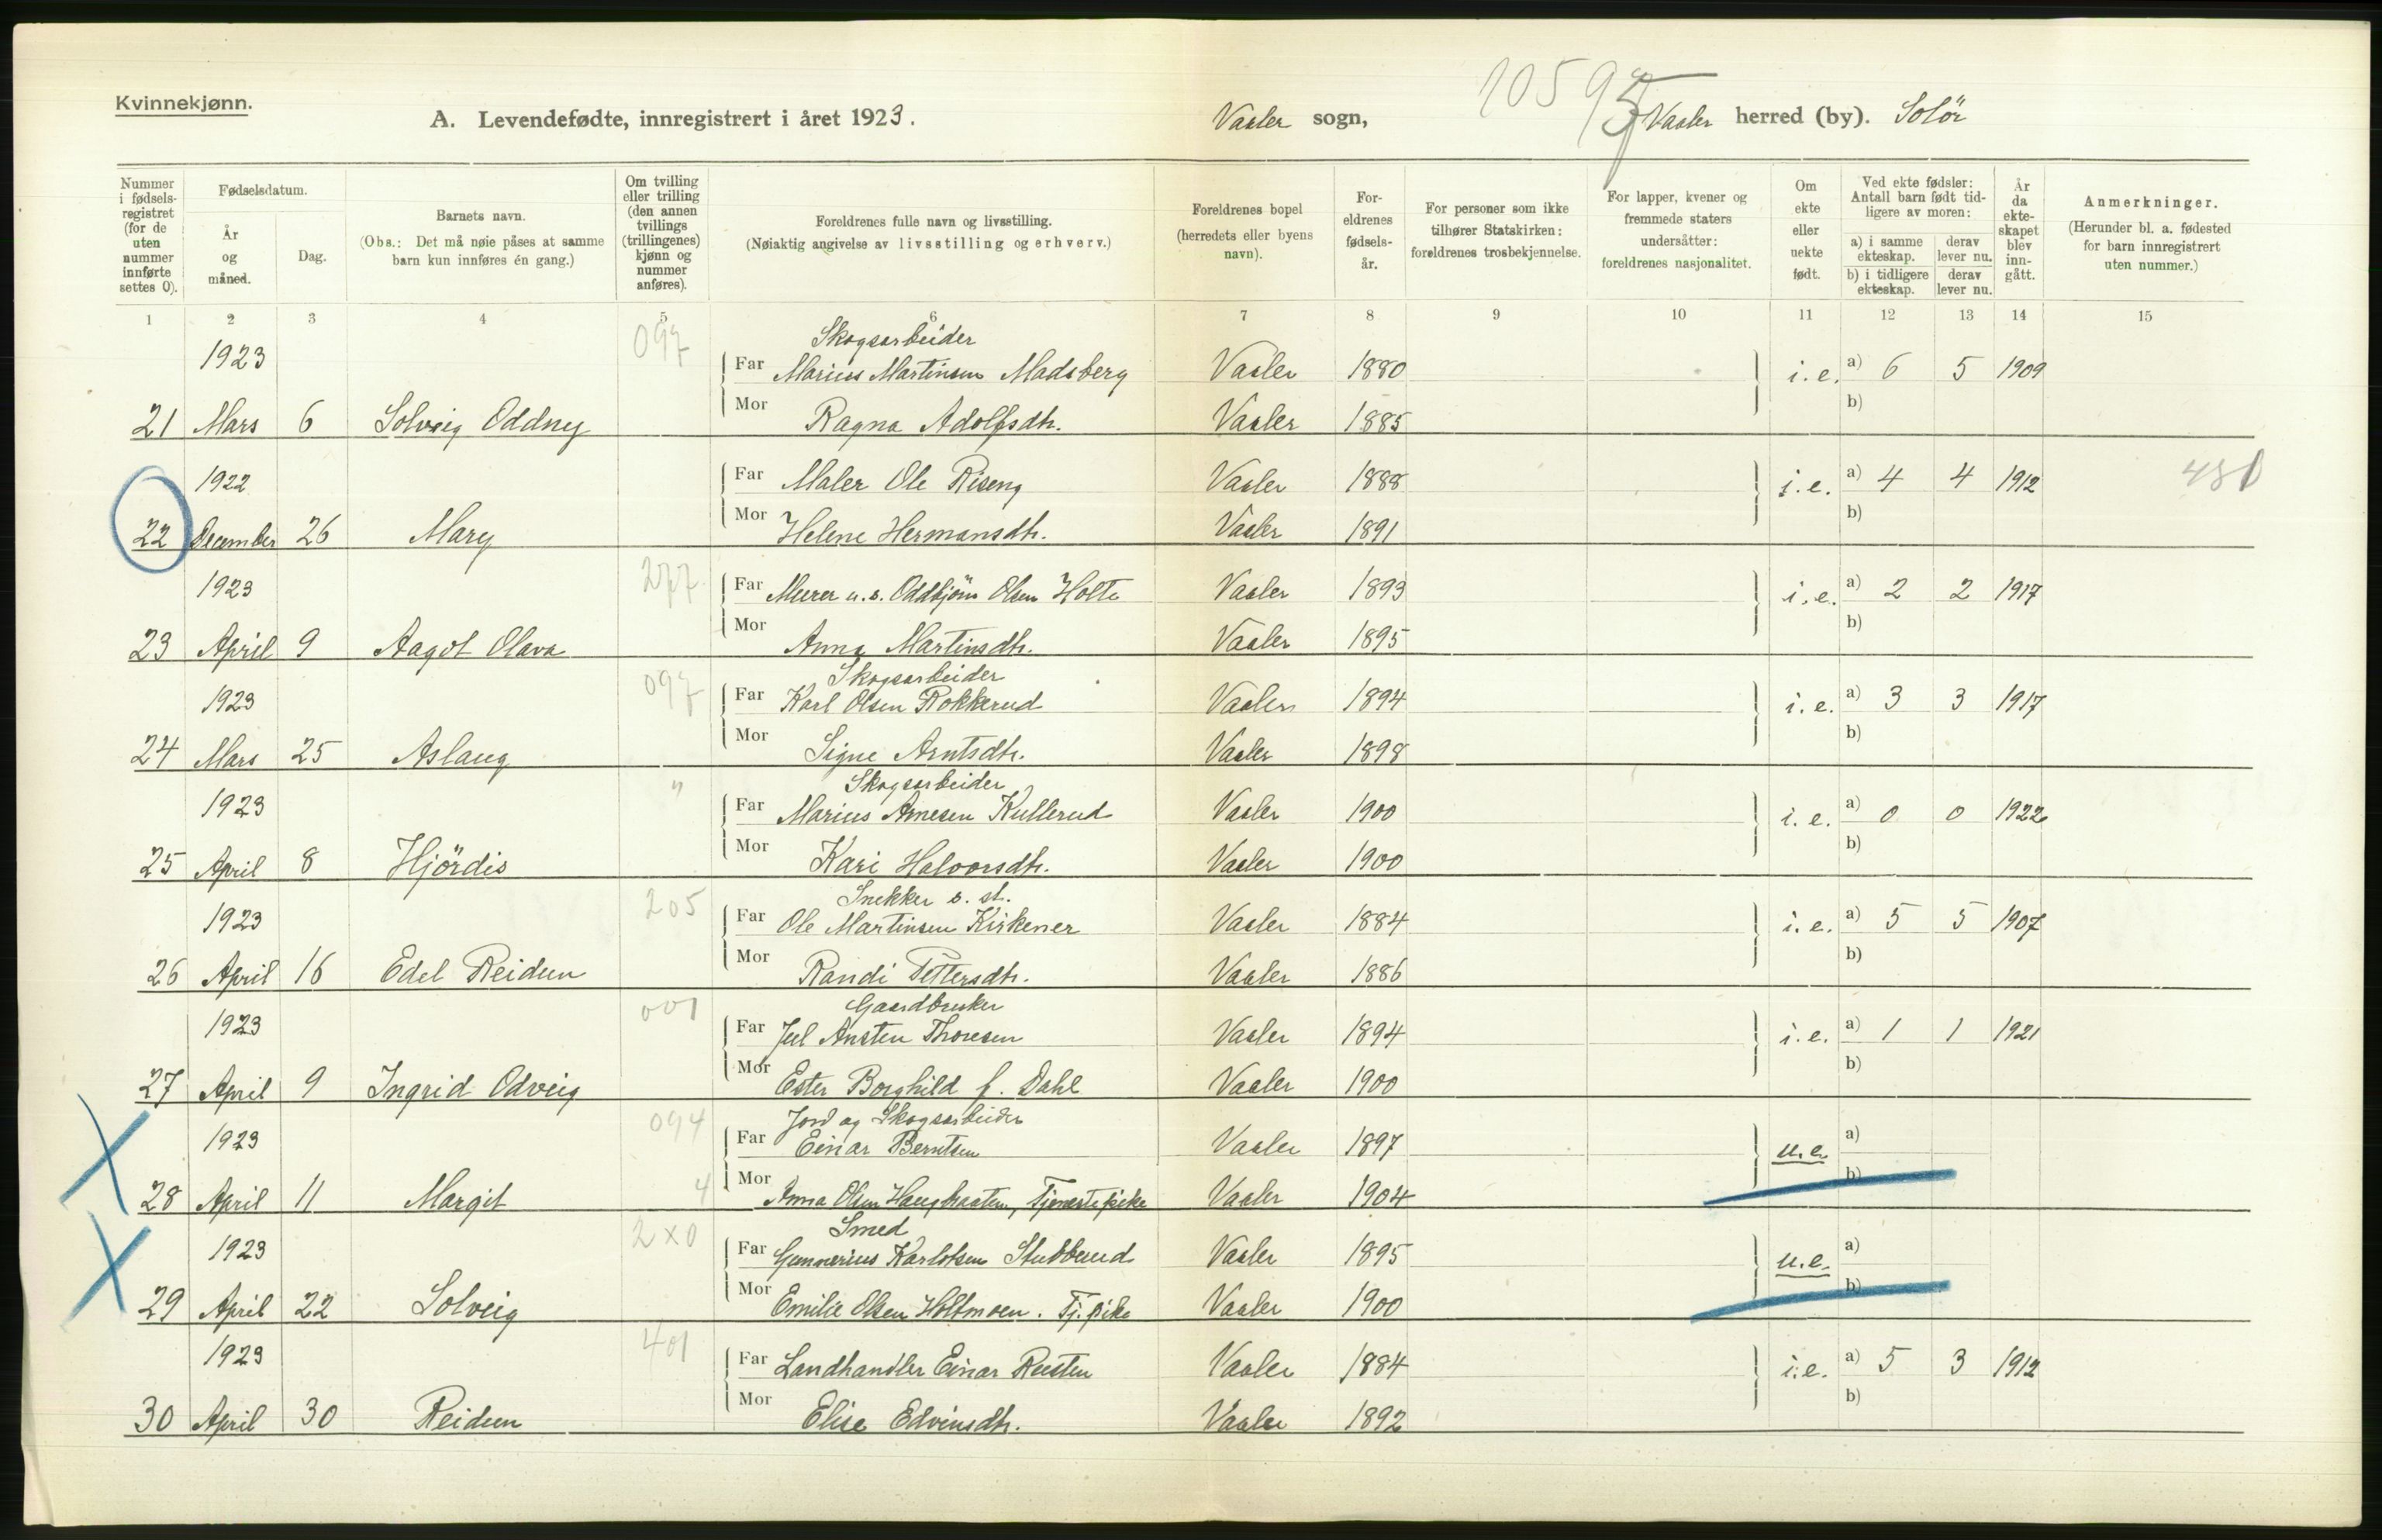 Kvinnekjønn.
A. Levendefødte, innregistrert i året 1923. Vaaler sogn, Vaaler herred (by). Solör
1059
Nummer i fødselsregistret (for de uten nummer innførte settes 0).
Fødselsdatum.
År og måned.
Dag.
Barnets navn.
(Obs.: Det må nøie påses at samme barn kun innføres én gang.)
Om tvilling eller trilling (den annen tvillings (trillingenes) kjønn og nummer anføres).
Foreldrenes fulle navn og livsstilling.
(Nøiaktig angivelse av livsstilling og erhverv.)
Foreldrenes bopel (herredets eller byens navn).
Foreldrenes fødselsår.
For personer som ikke tilhører Statskirken: foreldrenes trosbekjennelse.
For lapper, kvener og fremmede staters undersåtter: foreldrenes nasjonalitet.
Om ekte eller uekte født.
Ved ekte fødsler: Antall barn født tidligere av moren:
a) i samme ekteskap. derav lever nu.
b) i tidligere ekteskap. derav lever nu.
År da ekteskapet blev inngått.
Anmerkninger.
(Herunder bl. a. fødested for barn innregistrert uten nummer.)
1 2 3 4 5 6 7 8 9 10 11 12 13 14 15
097 Skogsarbeider
1923 Far Marius Martinsen Madsberg Vaaler 1880 i.e. a) 6 5 1909
21 Mars 6 Solveig Oddny Mor Ragna Adolfsdtr. Vaaler 1885 b)
1922 Far Maler Ole Riseng Vaaler 1888 i.e. a) 4 4 1912
22 December 26 Mary Mor Helene Hermansdtr. Vaaler 1891 b)
1923 277 Far Murer u.s. Oddbjörn Olsen Holte Vaaler 1893 i.e. a) 2 2 1917
23 April 9 Aagot Olava Mor Anna Martinsdtr. Vaaler 1895 b)
097 Skogsarbeider
1923 Far Karl Olsen Rokkerud Vaaler 1894 i.e. a) 3 3 1917
24 Mars 25 Aslaug Mor Signe Arntsdtr. Vaaler 1898 b)
" Skogsarbeider
1923 Far Marius Arnesen Kullerud Vaaler 1900 i.e. a) 0 0 1922
25 April 8 Hjördis Mor Kari Halvorsdtr. Vaaler 1900 b)
205 Snekker s. st.
1923 Far Ole Martinsen Kirkener Vaaler 1884 i.e. a) 5 5 1907
26 April 16 Edel Reidun Mor Randi Pettersdtr. Vaaler 1886 b)
001 Gaardbruker
1923 Far Juel Ansten Thoresen Vaaler 1894 i.e. a) 1 1 1921
27 April 9 Ingrid Odveig Mor Ester Borghild f. Dahl Vaaler 1900 b)
094 Jord og Skogsarbeider
1923 Far Einar Berntsen Vaaler 1897 u.e. a)
28 April 11 Margit 4 Mor Anna Olsen Tjenestepike Vaaler 1904 b)
2x0 Smed
1923 Far Gunnerius Karlotsen Stubberud Vaaler 1895 u.e. a)
29 April 22 Solveig Mor Emilie Olsen Holtmoen. Tj. pike Vaaler 1900 b)
401
1923 Far Landhandler Einar Rusten Vaaler 1884 i.e. a) 5 3 1912
30 April 30 Reidun Mor Elise Edvinsdtr. Vaaler 1892 b)